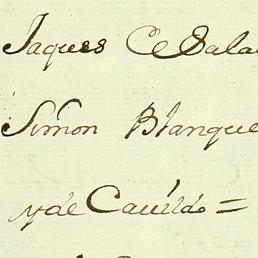 Jaques C Sala
Simon Blanque
y de Cavildo =